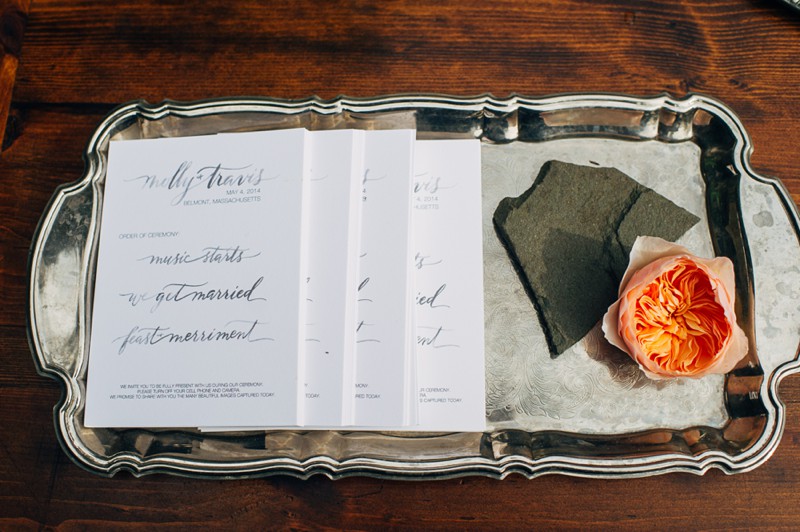 molly + travis
MAY 4, 2014
BELMONT, MASSACHUSETTS
ORDER OF CEREMONY:
music starts
we get married
feast + merriment
WE INVITE YOU TO BE FULLY PRESENT WITH US DURING OUR CEREMONY.
PLEASE TURN OFF YOUR CELL PHONE AND CAMERA.
WE PROMISE TO SHARE WITH YOU THE MANY BEAUTIFUL IMAGES CAPTURED TODAY.